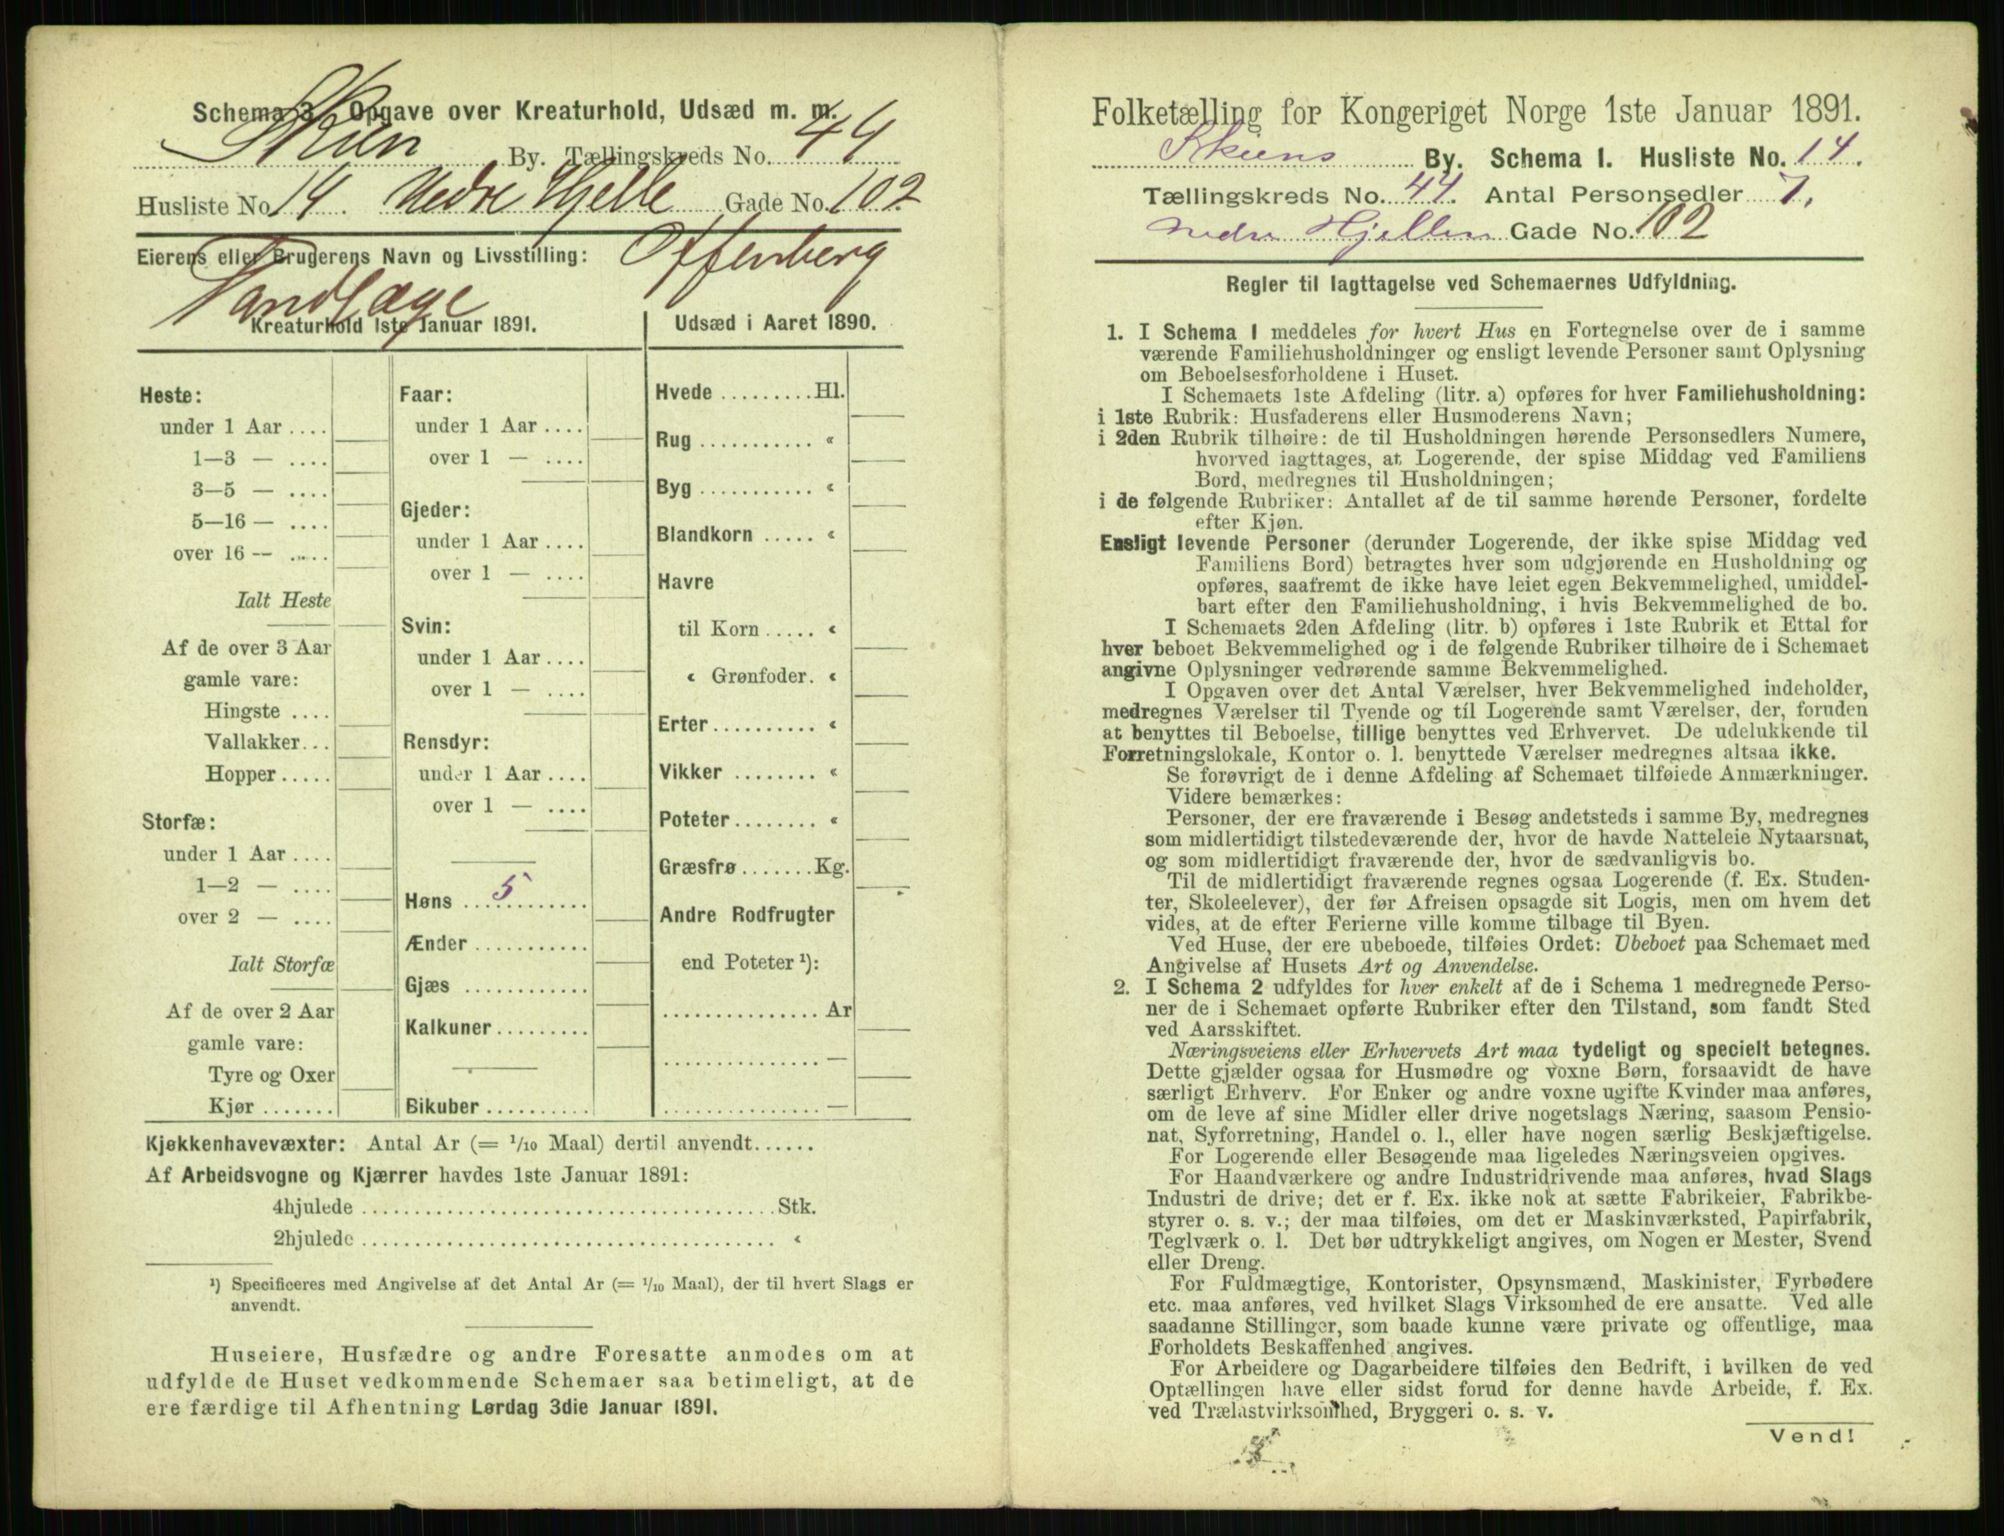 Schema 3. Opgave over Kreaturhold, Udsæd m. m.
Skien By. Tællingskreds No. 44
Husliste No. 14. Nedre Hjelle Gade No. 102
Eierens eller Brugerens Navn og Livsstilling: Offenberg
Tandlæge
Kreaturhold 1ste Januar 1891.
Heste:
under 1 Aar ....
1—3 — ....
3—5 — ....
5—16 — ....
over 16 — ....
Ialt Heste
Af de over 3 Aar
gamle vare:
Hingste ....
Vallakker...
Hopper.....
Storfæ:
under 1 Aar ....
1—2 — ....
over 2 — ....
Ialt Storfæ
Af de over 2 Aar
gamle vare:
Tyre og Oxer
Kjør .......
Faar:
under 1 Aar ....
over 1 — ....
Gjeder:
under 1 Aar ....
over 1 — ....
Svin:
under 1 Aar ....
over 1 — ....
Rensdyr:
under 1 Aar ....
over 1 — ....
Høns 5
Ænder ...........
Gjæs ............
Kalkuner.........
Bikuber..........
Udsæd i Aaret 1890.
Hvede .........Hl.
Rug ........... «
Byg ........... «
Blandkorn ..... «
Havre
til Korn ..... «
« Grønfoder. «
Erter.......... «
Vikker ........ «
Poteter........ «
Græsfrø .......Kg.
Andre Rodfrugter
end Poteter ¹):
............... Ar
............... —
............... —
Kjøkkenhavevæxter: Antal Ar (= 1/10 Maal) dertil anvendt......
Af Arbeidsvogne og Kjærrer havdes 1ste Januar 1891:
4hjulede ....................................... Stk.
2hjulede ....................................... «
¹) Specificeres med Angivelse af det Antal Ar (= 1/10 Maal), der til hvert Slags er
anvendt.
Huseiere, Husfædre og andre Foresatte anmodes om at
udfylde de Huset vedkommende Schemaer saa betimeligt, at de
ere færdige til Afhentning Lørdag 3die Januar 1891.
Folketælling for Kongeriget Norge 1ste Januar 1891.
Skiens By. Schema 1. Husliste No. 14.
Tællingskreds No. 44. Antal Personsedler 7.
Nedre Hjellen Gade No. 102
Regler til Iagttagelse ved Schemaernes Udfyldning.
1. I Schema 1 meddeles for hvert Hus en Fortegnelse over de i samme
værende Familiehusholdninger og ensligt levende Personer samt Oplysning
om Beboelsesforholdene i Huset.
I Schemaets 1ste Afdeling (litr. a) opføres for hver Familiehusholdning:
i 1ste Rubrik: Husfaderens eller Husmoderens Navn;
i 2den Rubrik tilhøire: de til Husholdningen hørende Personsedlers Numere,
hvorved iagttages, at Logerende, der spise Middag ved Familiens
Bord, medregnes til Husholdningen;
i de følgende Rubriker: Antallet af de til samme hørende Personer, fordelte
efter Kjøn.
Ensligt levende Personer (derunder Logerende, der ikke spise Middag ved
Familiens Bord) betragtes hver som udgjørende en Husholdning og
opføres, saafremt de ikke have leiet egen Bekvemmelighed, umiddel-
bart efter den Familiehusholdning, i hvis Bekvemmelighed de bo.
I Schemaets 2den Afdeling (litr. b) opføres i 1ste Rubrik et Ettal for
hver beboet Bekvemmelighed og i de følgende Rubriker tilhøire de i Schemaet
angivne Oplysninger vedrørende samme Bekvemmelighed.
I Opgaven over det Antal Værelser, hver Bekvemmelighed indeholder,
medregnes Værelser til Tyende og til Logerende samt Værelser, der, foruden
at benyttes til Beboelse, tillige benyttes ved Erhvervet. De udelukkende til
Forretningslokale, Kontor o. l. benyttede Værelser medregnes altsaa ikke.
Se forøvrigt de i denne Afdeling af Schemaet tilføiede Anmærkninger.
Videre bemærkes:
Personer, der ere fraværende i Besøg andetsteds i samme By, medregnes
som midlertidigt tilstedeværende der, hvor de havde Natteleie Nytaarsnat,
og som midlertidigt fraværende der, hvor de sædvanligvis bo.
Til de midlertidigt fraværende regnes ogsaa Logerende (f. Ex. Studen-
ter, Skoleelever), der før Afreisen opsagde sit Logis, men om hvem det
vides, at de efter Ferierne ville komme tilbage til Byen.
Ved Huse, der ere ubeboede, tilføies Ordet: Ubeboet paa Schemaet med
Angivelse af Husets Art og Anvendelse.
2. I Schema 2 udfyldes for hver enkelt af de i Schema 1 medregnede Perso-
ner de i Schemaet opførte Rubriker efter den Tilstand, som fandt Sted
ved Aarsskiftet.
Næringsveiens eller Erhvervets Art maa tydeligt og specielt betegnes.
Dette gjælder ogsaa for Husmødre og voxne Børn, forsaavidt de have
særligt Erhverv. For Enker og andre voxne ugifte Kvinder maa anføres,
om de leve af sine Midler eller drive nogetslags Næring, saasom Pensio-
nat, Syforretning, Handel o. l., eller have nogen særlig Beskjæftigelse.
For Logerende eller Besøgende maa ligeledes Næringsveien opgives.
For Haandværkere og andre Industridrivende maa anføres, hvad Slags
Industri de drive; det er f. Ex. ikke nok at sætte Fabrikeier, Fabrikbe-
styrer o. s. v.; der maa tilføies, om det er Maskinværksted, Papirfabrik,
Teglværk o. l. Det bør udtrykkeligt angives, om Nogen er Mester, Svend
eller Dreng.
For Fuldmægtige, Kontorister, Opsynsmænd, Maskinister, Fyrbødere
etc. maa anføres, ved hvilket Slags Virksomhed de ere ansatte. Ved alle
saadanne Stillinger, som baade kunne være private og offentlige, maa
Forholdets Beskaffenhed angives.
For Arbeidere og Dagarbeidere tilføies den Bedrift, i hvilken de ved
Optællingen have eller sidst forud for denne havde Arbeide, f. Ex.
ved Trælastvirksomhed, Bryggeri o. s. v.
Vend!